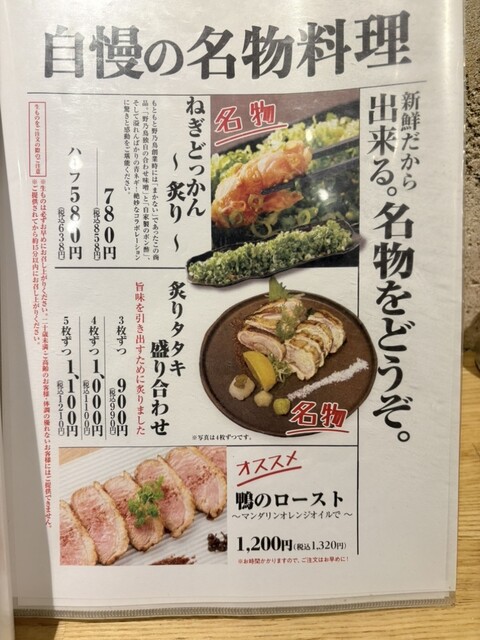 自慢の名物料理
新鮮だから
出来る。名物をどうぞ。
名物
ねぎどっかん
～炙り～
もともと野乃鳥創業時には「まかない」であったこの商
品。「野乃鳥独自の合わせ味噌」と「自家製のポン酢」
そして溢れんばかりの青ネギ！絶妙なコラボレーション
に驚きと感動をご堪能ください。
780円
(税込858円)
ハーフ580円
(税込638円)
名物
炙りタタキ
盛り合わせ
旨味を引き出すために炙りました
3枚ずつ 900円
(税込990円)
4枚ずつ 1,000円
(税込1100円)
5枚ずつ 1,100円
(税込1210円)
※写真は4枚ずつです。
生ものをご注文の際のご注意
※生ものは必ずお早めにお召し上がりください。二十歳未満・ご高齢のお客様・体調の優れないお客様にはご提供できません。
※ご提供されてから約15分以内にお召し上がりください。
オススメ
鴨のロースト
～マンダリンオレンジオイルで～
1,200円(税込1,320円)
※お時間かかりますので、ご注文はお早めに!